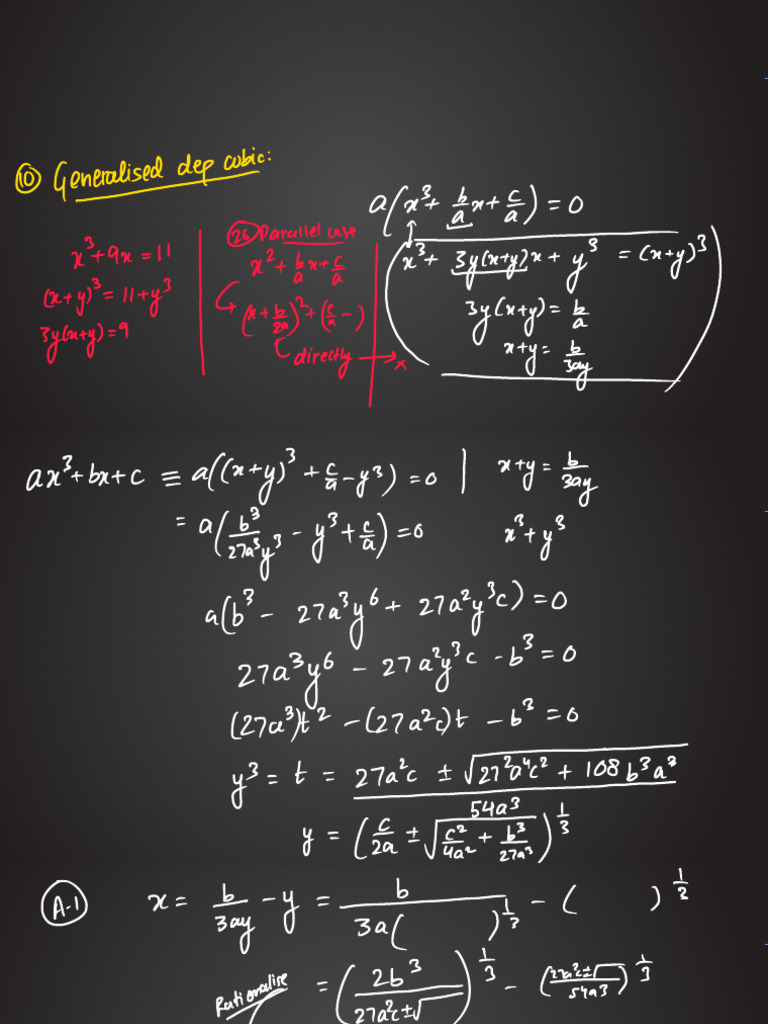 ⑩ Generalised dep cubic:
a(x³ + b/a x + c/a) = 0
x³ + 9x = 11
(x+y)³ = 11 + y³
3y(x+y) = 9
(26) Parallel case
x² + b/a x + c/a
(x + b/2a)² + (c/a - )
directly → x
x³ + 3y(x+y)x + y³ = (x+y)³
3y(x+y) = b/a
x+y = b/3ay
ax³ + bx + c ≡ a((x+y)³ + c/a - y³) = 0 | x+y = b/3ay
= a(b³/27a³y³ - y³ + c/a) = 0 x³ + y³
a(b³ - 27a³y⁶ + 27a²y³c) = 0
27a³y⁶ - 27a²y³c - b³ = 0
(27a³)t² - (27a²c)t - b³ = 0
y³ = t = 27a²c ± √27²a⁴c² + 108b³a³ / 54a³
y = (c/2a ± √c²/4a² + b³/27a³)^1/3
A-1 x = b/3ay - y = b/3a( )^1/3 - ( )^1/3
Rationalise = (2b³/27a²c±√)^1/3 - (27a²c±√/54a³)^1/3